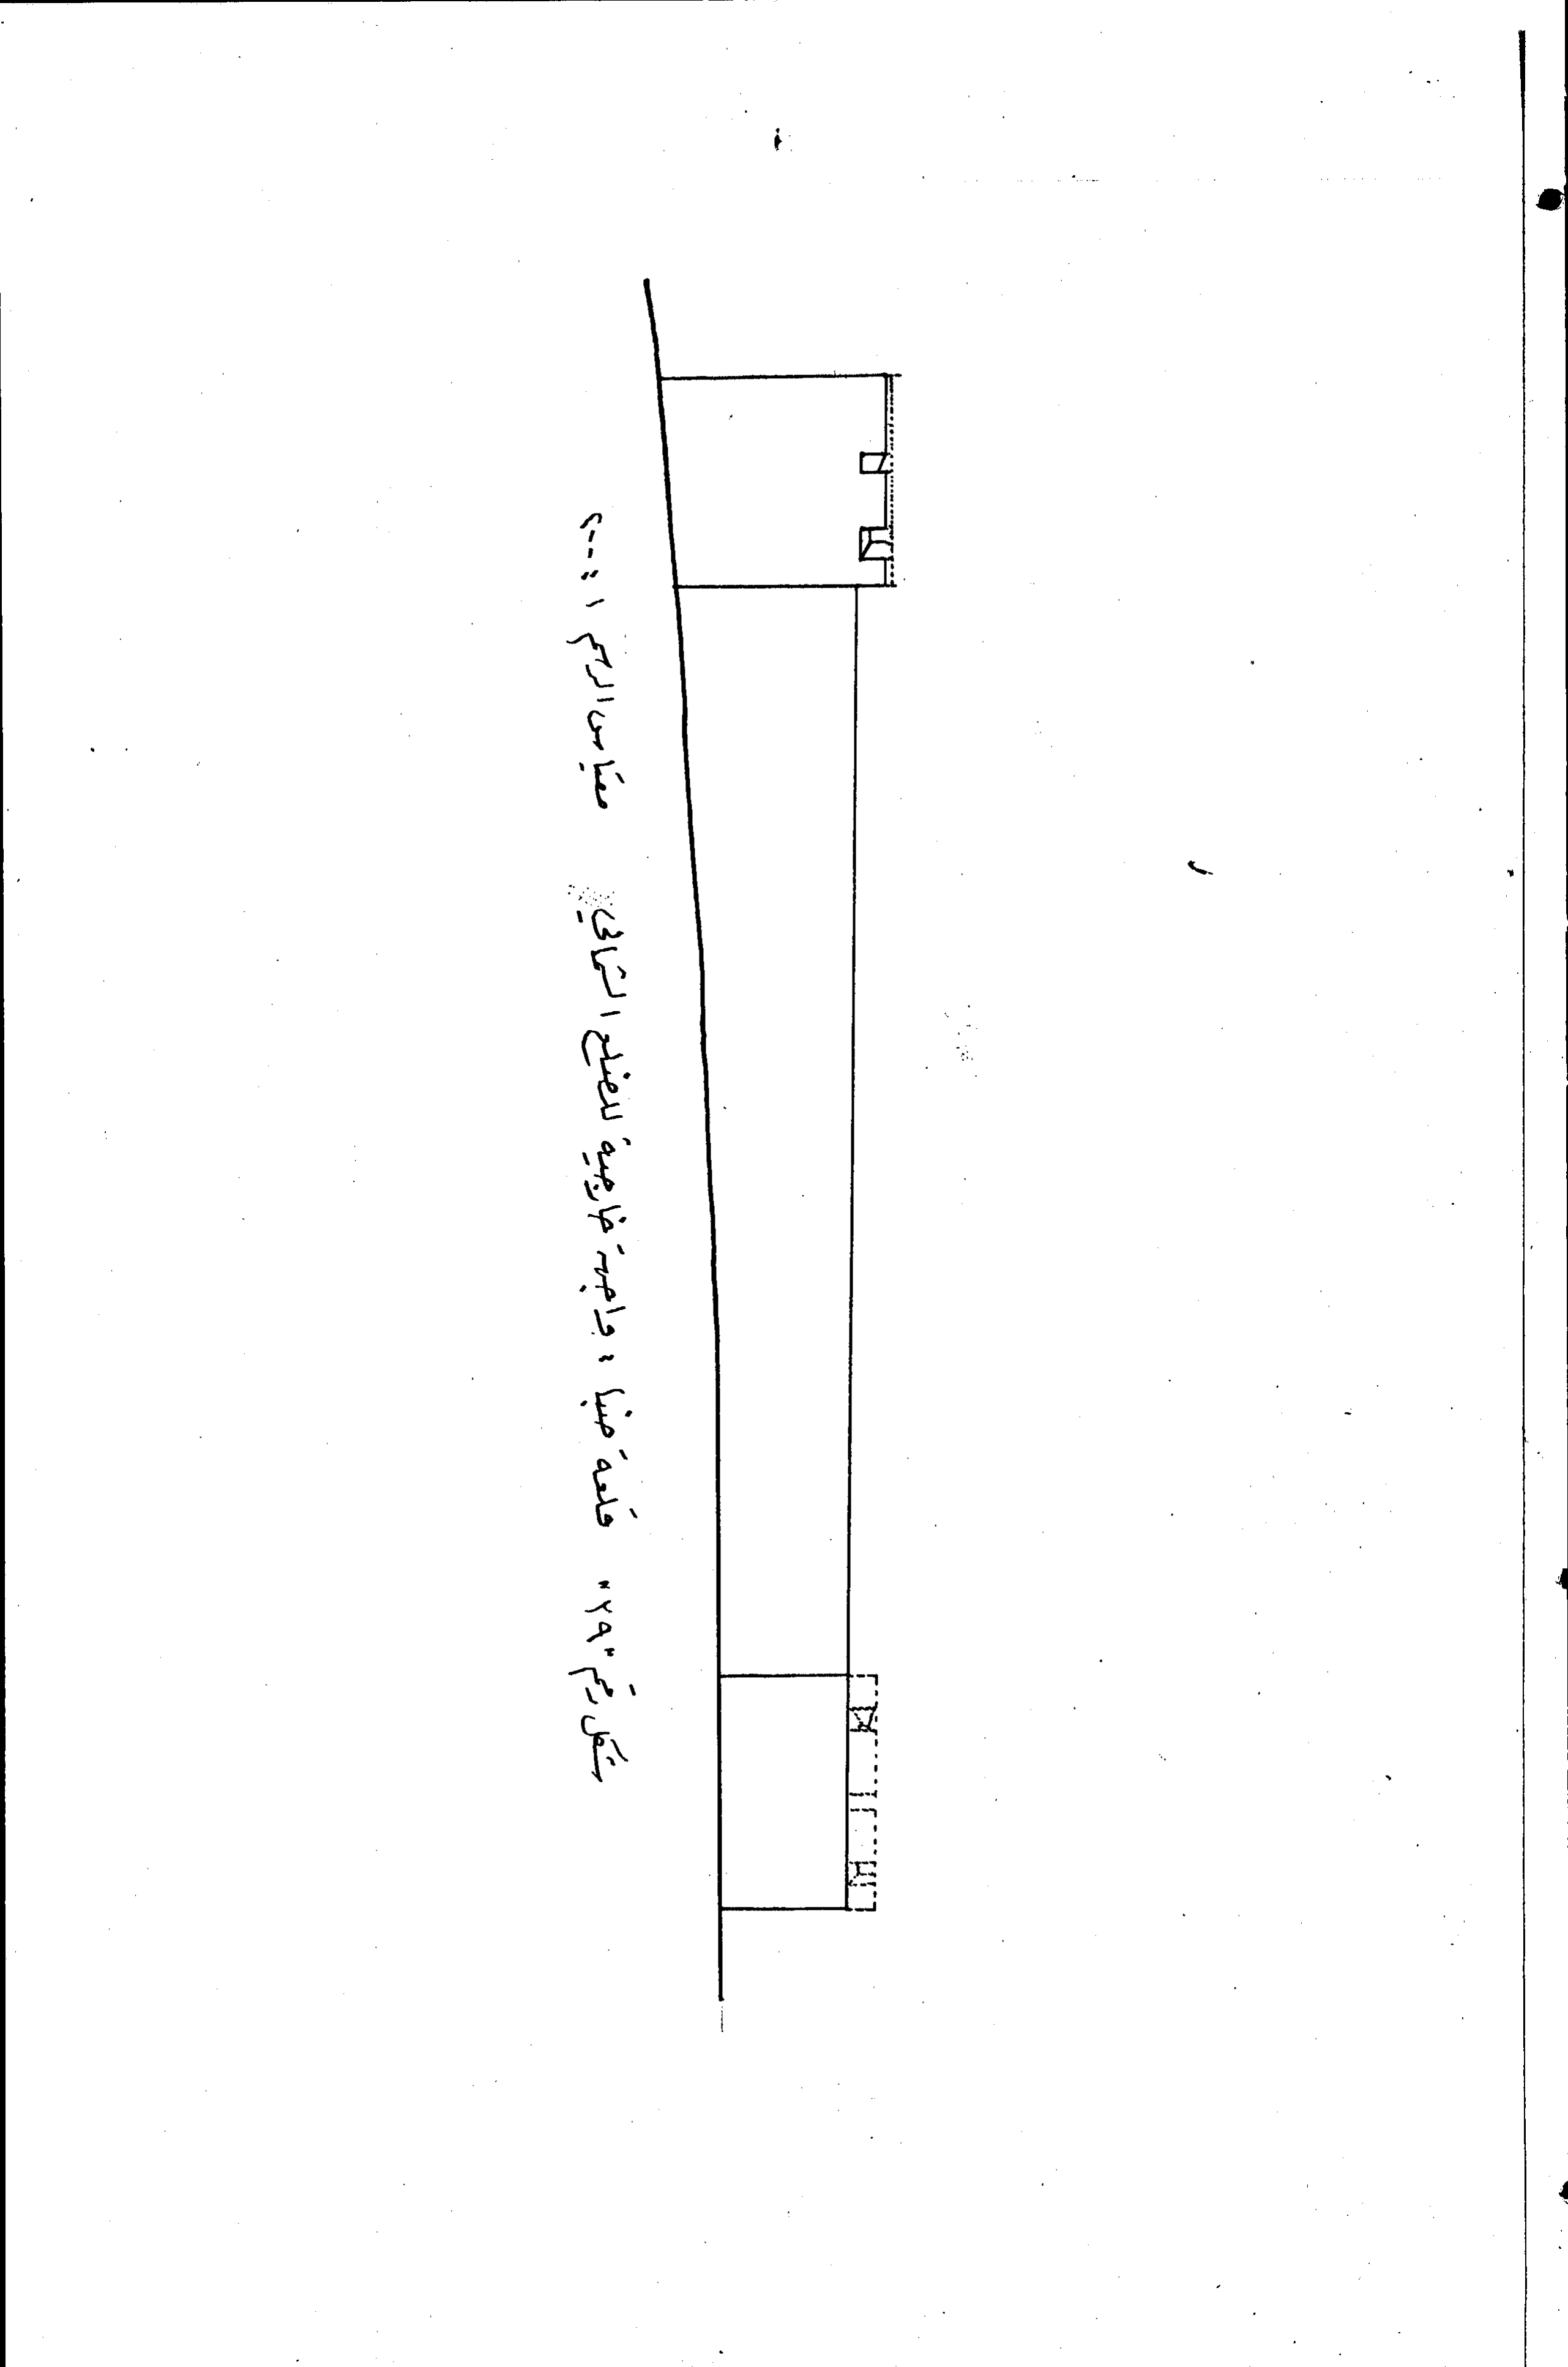 شكل رقم "٢٥" قلعة ضبا ، واجهة خارجية للضلع الشمالي مقياس الرسم ١ : ٢٠٠